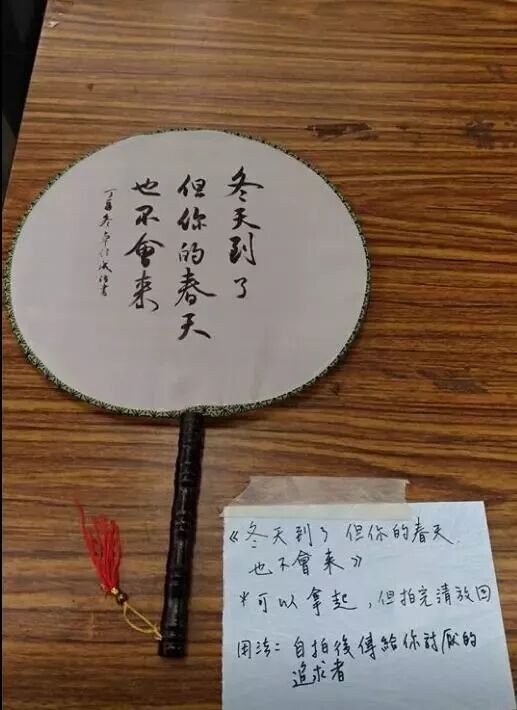 冬天到了
但你的春天
也不會來
《冬天到了 但你的春天
也不會來》
*可以拿起,但拍完請放回
用法:自拍後傳給你討厭的
追求者